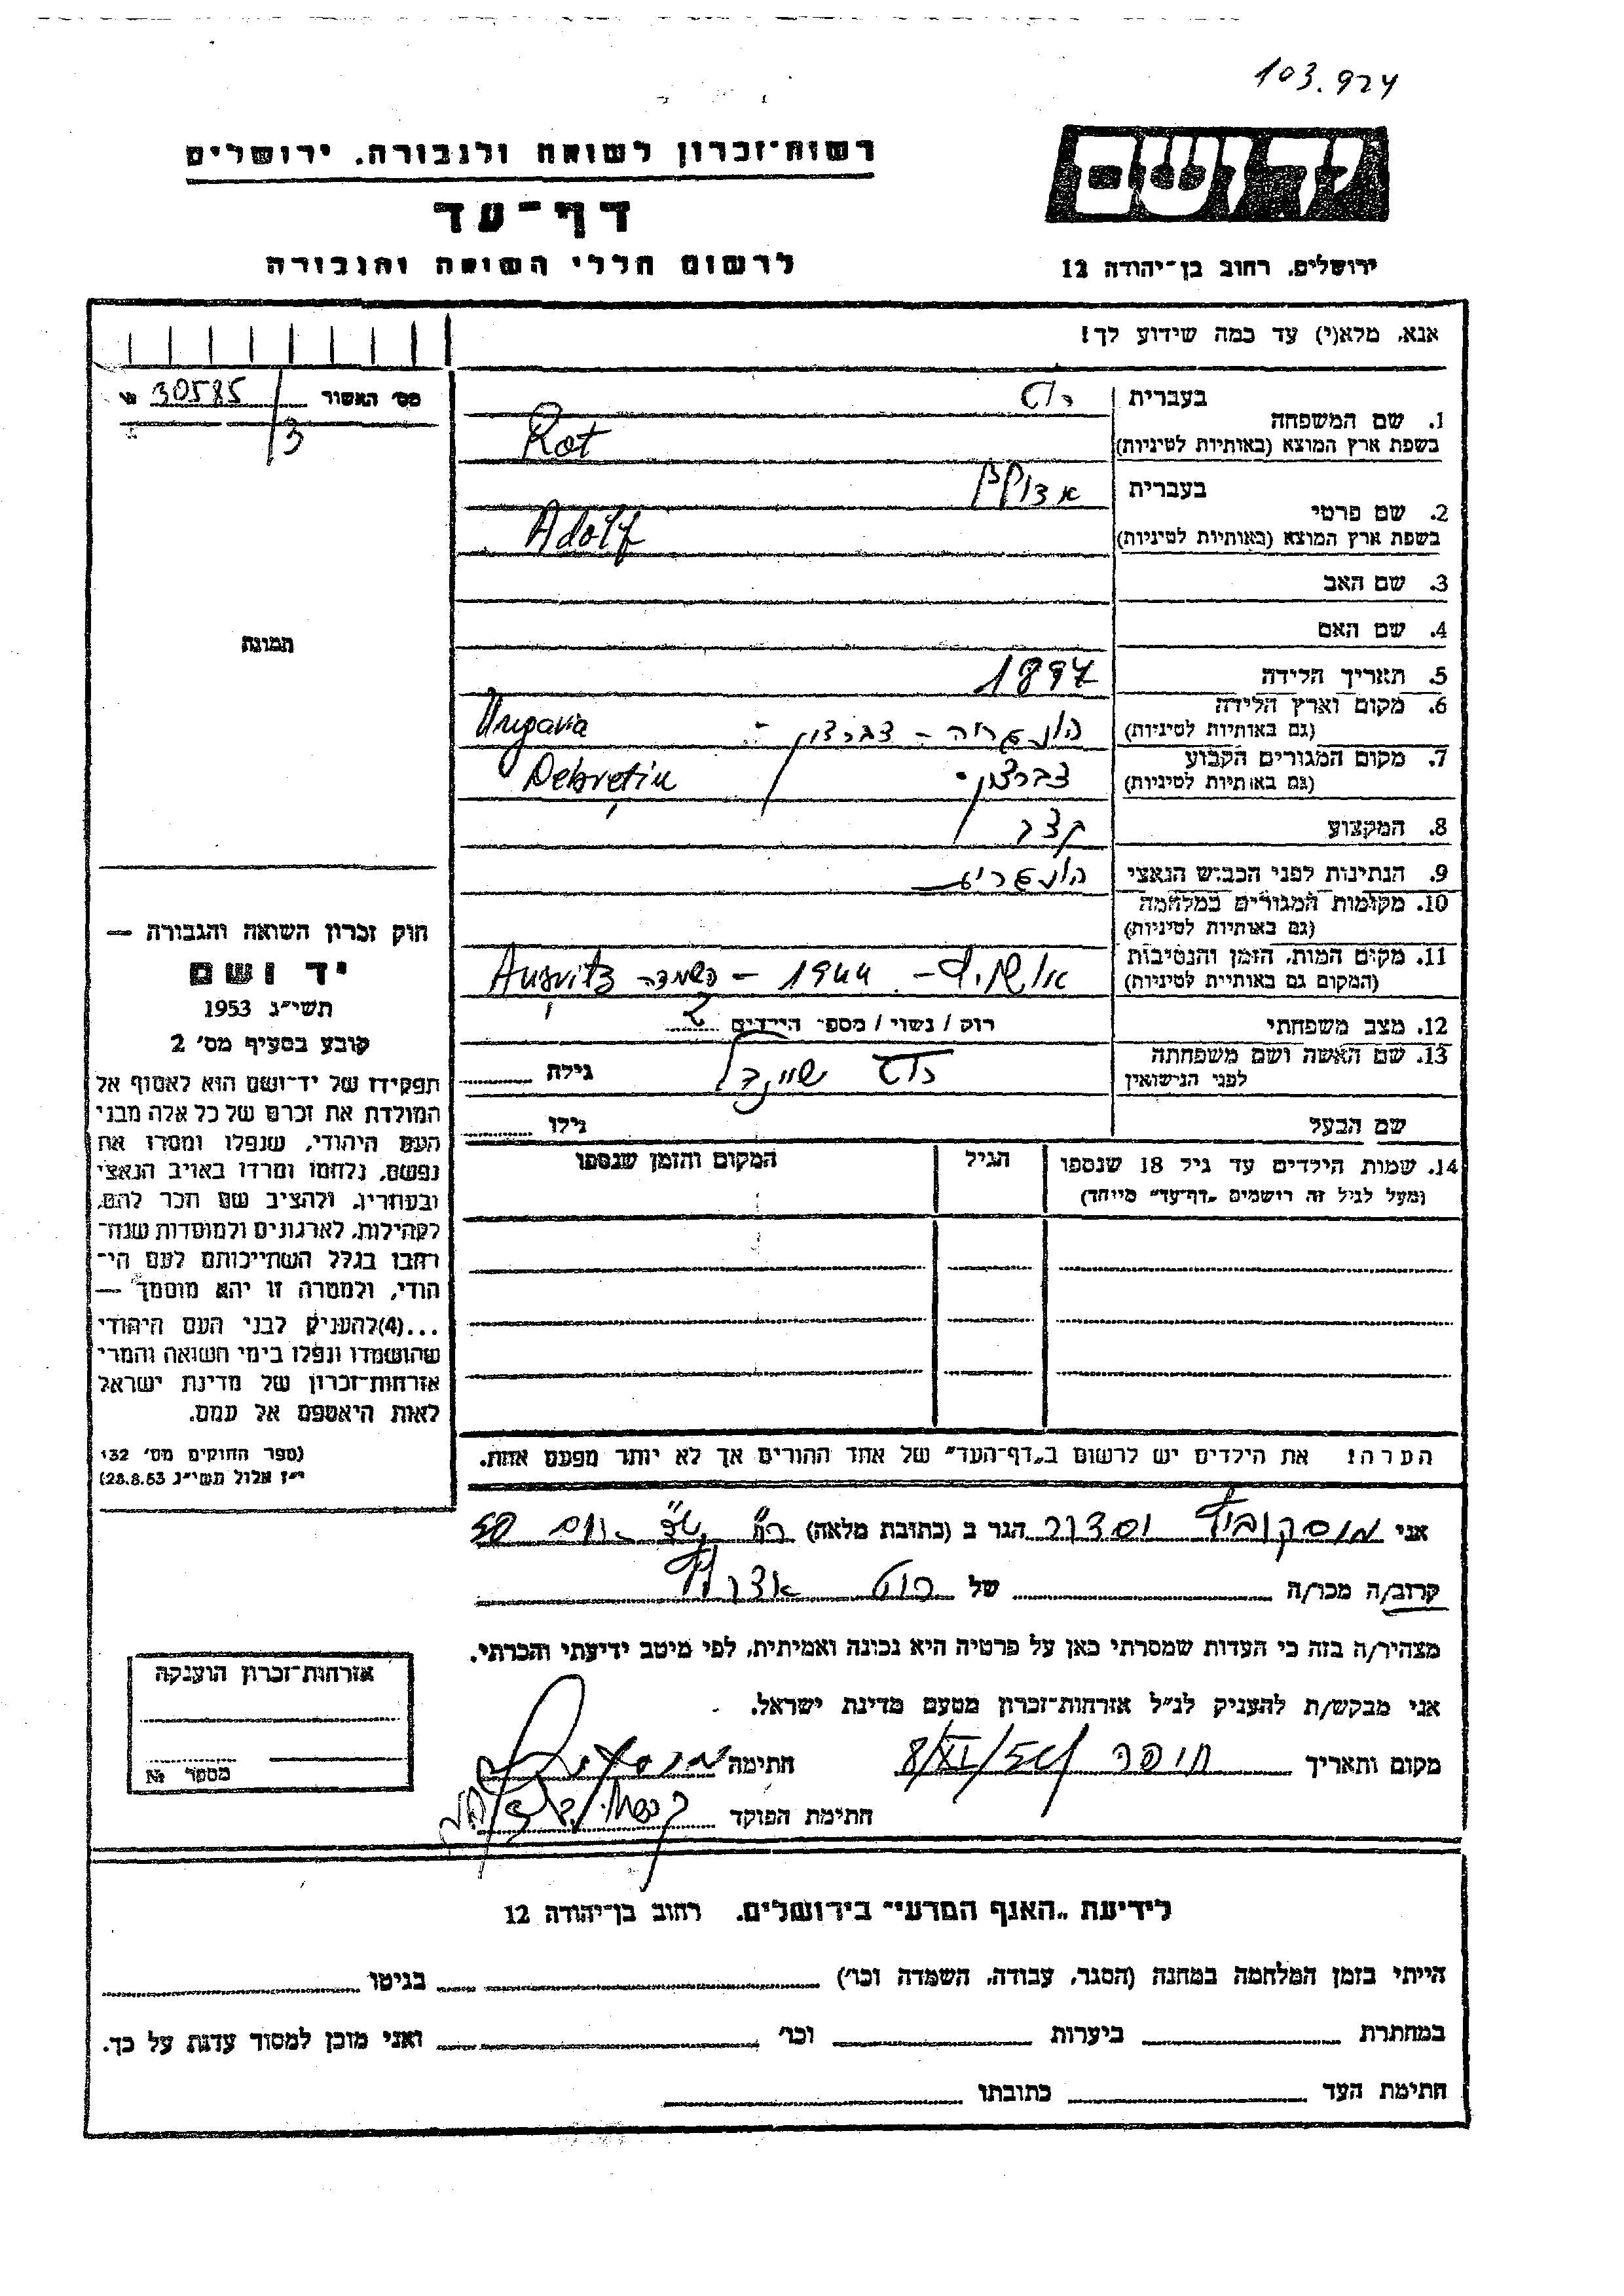 103.924
רשות־זכרון לשואה ולגבורה. ירושלים
דף־עד
לרשום חללי השואה והגבורה
ידושם
ירושלים. רחוב בן־יהודה 12
אנא, מלא(י) עד כמה שידוע לך!
מס׳ האשור 30585
/3
תמונה
חוק זכרון השואה והגבורה —
יד ושם
תשי״ג 1953
קובע בסעיף מס׳ 2
תפקידו של יד־ושם הוא לאסוף אל
המולדת את זכרם של כל אלה מבני
העם היהודי, שנפלו ומסרו את
נפשם, נלחמו ומרדו באויב הנאצי
ובעוזריו, ולהציב שם וזכר להם,
לקהילות, לארגונים ולמוסדות שנח־
רבו בגלל השתייכותם לעם הי־
הודי, ולמטרה זו יהא מוסמך —
...(4) להעניק לבני העם היהודי
שהושמדו ונפלו בימי השואה והמרי
אזרחות־זכרון של מדינת ישראל
לאות היאספם אל עמם.
(ספר החוקים מס׳ 132
י״ז אלול תשי״ג 28.8.53)
1. שם המשפחה
בעברית רוט
בשפת ארץ המוצא (באותיות לטיניות) Rot
2. שם פרטי
בעברית אדולף
בשפת ארץ המוצא (באותיות לטיניות) Adolf
3. שם האב
4. שם האם
5. תאריך הלידה 1897
6. מקום וארץ הלידה
(גם באותיות לטיניות) הונגריה - דברצון - Ungaria
7. מקום המגורים הקבוע
(גם באותיות לטיניות) דברצון - Debretin
8. המקצוע קצב
9. הנתינות לפני הכבוש הנאצי הונגרית
10. מקומות המגורים במלחמה
(גם באותיות לטיניות)
11. מקום המות, הזמן והנסיבות
(המקום גם באותיות לטיניות) אושויץ - 1944 - השמדה Ausvitz
12. מצב משפחתי רוק / נשוי / מספר הילדים 2
13. שם האשה ושם משפחתה
לפני הנישואין רוט שיינדל גילה
שם הבעל גילו
14. שמות הילדים עד גיל 18 שנספו
(מעל לגיל זה רושמים „דף־עד״ מיוחד)
הגיל
המקום והזמן שנספו
הערה: את הילדים יש לרשום ב„דף־העד״ של אחד ההורים אך לא יותר מפעם אחת.
אני מוסקוביץ הגר ב (כתובת מלאה)
קרוב/ה מכר/ה של רוט אדולף
מצהיר/ה בזה כי העדות שמסרתי כאן על פרטיה היא נכונה ואמיתית, לפי מיטב ידיעתי והכרתי.
אני מבקש/ת להעניק לנ״ל אזרחות־זכרון מטעם מדינת ישראל.
מקום ותאריך חיפה 8/XI/54 חתימה
חתימת הפוקד
אזרחות־זכרון הוענקה
מספר №
לידיעת „האגף המדעי״ בירושלים. רחוב בן־יהודה 12
הייתי בזמן המלחמה במחנה (הסגר, עבודה, השמדה וכו׳) בגיטו
במחתרת ביערות וכו׳ ואני מוכן למסור עדות על כך.
חתימת העד כתובתו